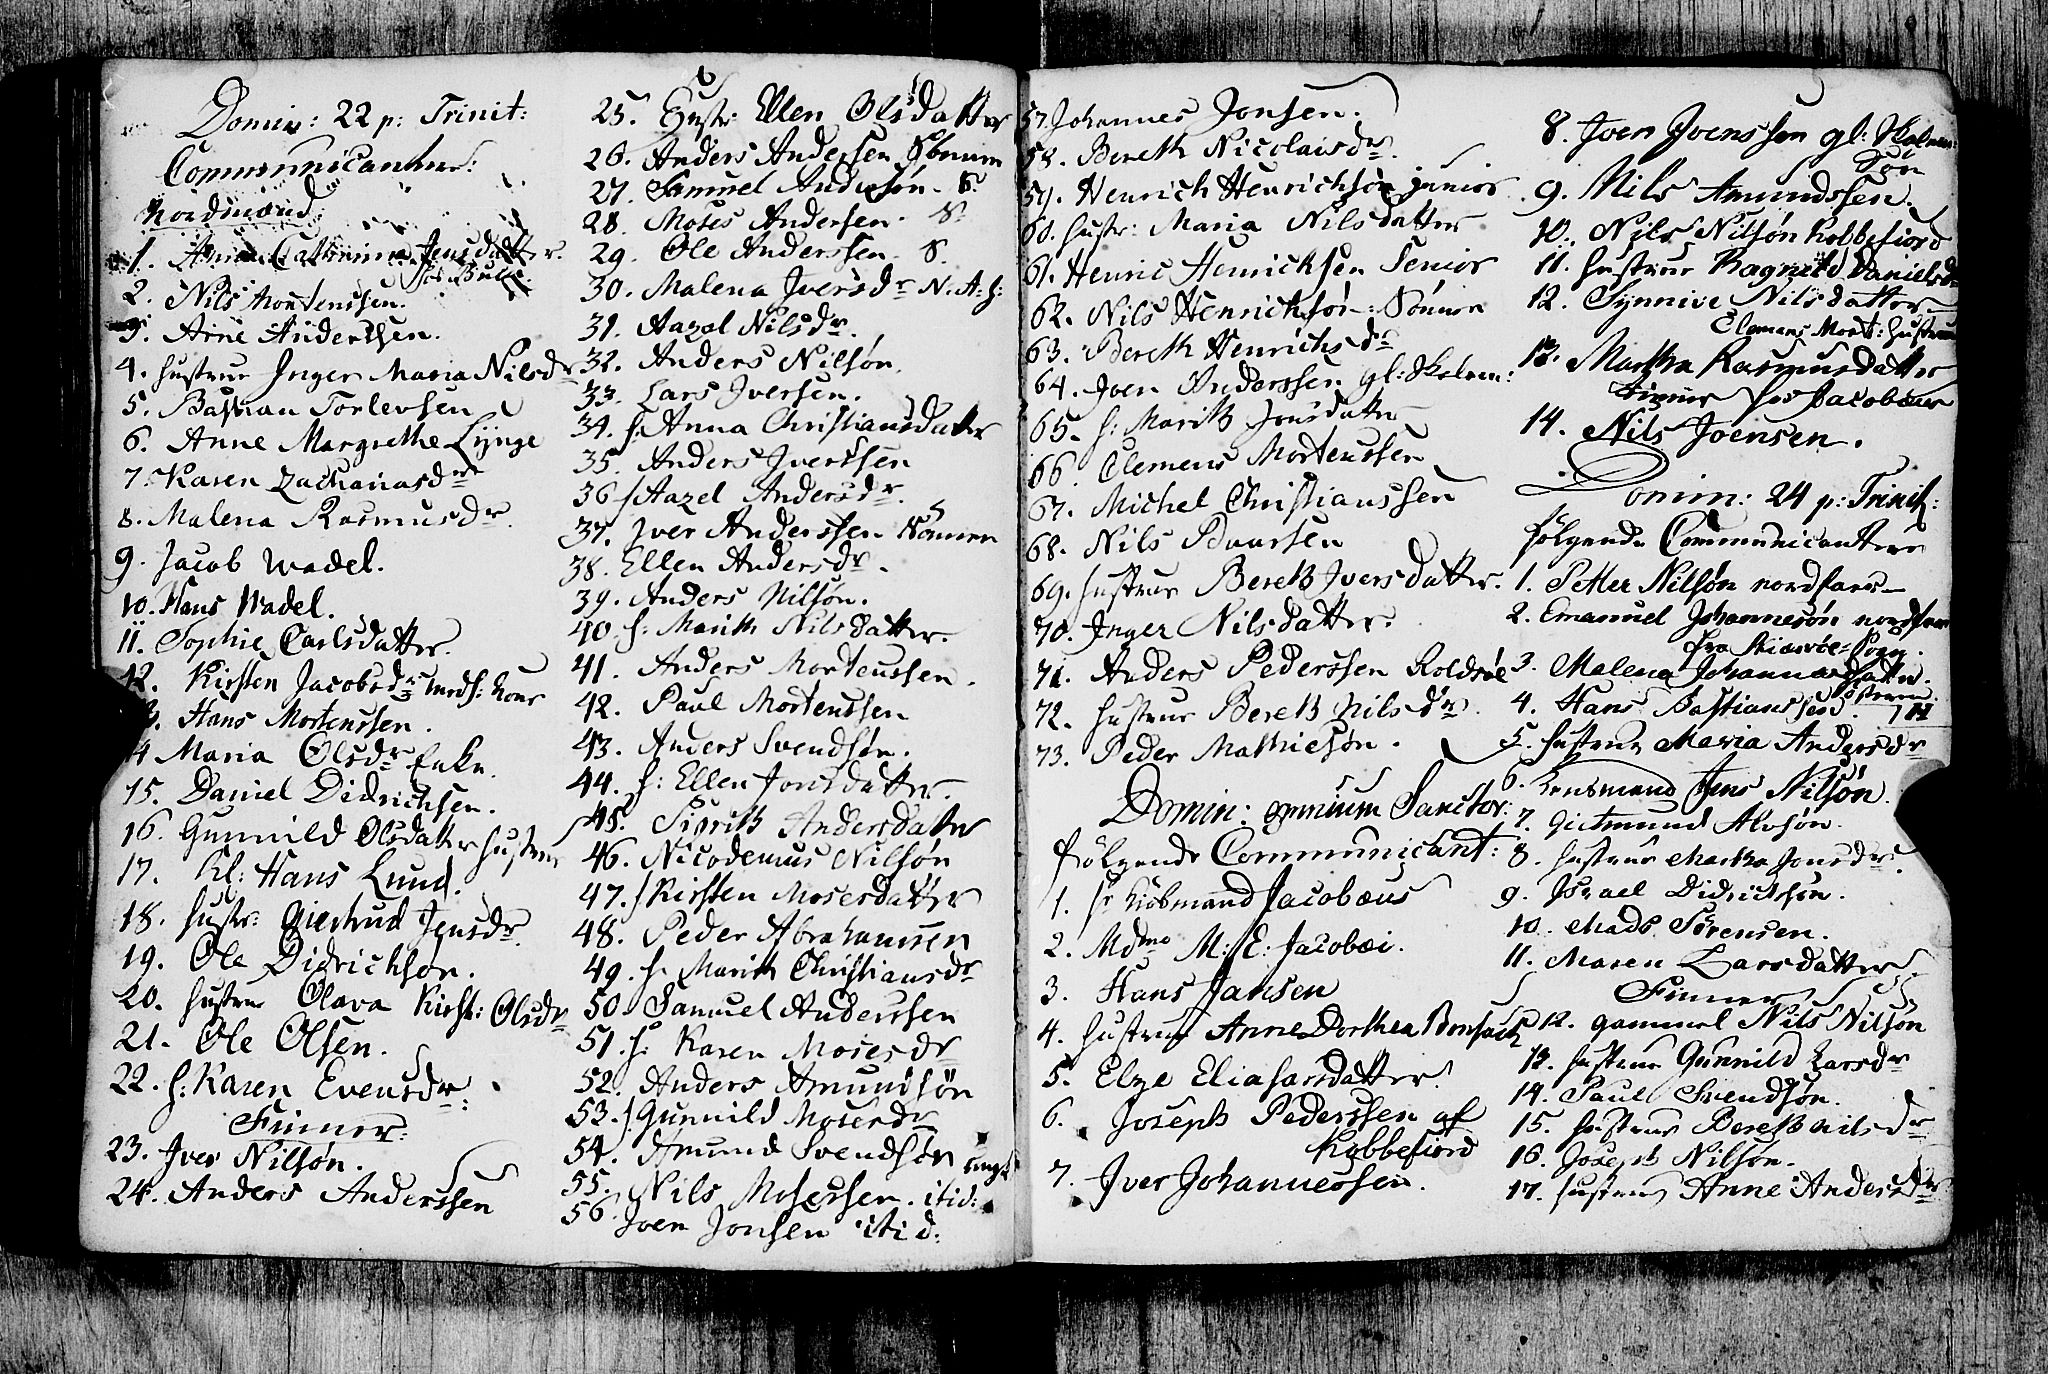 Domin: 22 p: Trinit:
Communicanter:
Nordmænd
1. Anne Cathrina Jensdatter.
2. Nils Mortenssen.
3. Arne Anderssen.
4. hustrue Inger Maria Nilsdr
5. Bastian Torlevsen
6. Anne Margrethe Lÿnge
7. Karen Zachariasdr
8. Malena Rasmusdr
9. Jacob Wadel.
10. Hans Wadel.
11. Sophie Carlsdatter.
12. Kirsten Jacobsdr Kone
13. Hans Mortenssen.
14 Maria Olsdr Enke.
15. Daniel Didrichsen.
16. Gunnild Olsdatter hustrue
17. Kl: Hans Lund.
18. hustr: Giertrud Jensdr
19. Ole Didrichsøn.
20. hustrue Olava Kirst: Olsdr
21. Ole Olsen.
22. h: Karen Evensdr:
Finner:
23. Iver Nilsøn.
24. Anders Anderssen
25. Hustr: Ellen Olsdatter
26. Anders Andersen Sönnen
27. Samuel Andersøn. S.
28. Moses Andersen. S.
29. Ole Anderssen. S.
30. Malena Iversdr N. A: h:
31. Aazel Nilsdr.
32. Anders Nilsøn.
33. Lars Iversen.
34. h: Anna Christiansdatter
35. Anders Iverssen
36 h Aazel Andersdr.
37. Iver Anderssen Sönnen
38. Ellen Andersdr.
39. Anders Nilsøn.
40. h: Marith Nilsdatter.
41. Anders Mortenssen.
42. Paul Mortenssen
43. Anders Svendsøn.
44. h: Ellen Jonsdatter.
45. Sigrith Andersdatter
46. Nicodemus Nilsøn
47. h Kirsten Mosesdatter
48. Peder Abrahamsen
49. h: Marith Christiansdr
50. Samuel Anderssen
51. h: Karen Mosesdr
52. Anders Amundsøn
53. h Gunnild Mosesdr
54. Amund Svendsøn ungk
55. Nils Mosessen. itid:
56. Joen Jonsen itid:
57. Johannes Jonsen.
58. Bereth Nicolaisdr.
59. Henrich Henrichsøn junior
60. hustr: Maria Nilsdatter
61. Henric Henricksen Senior
62. Nils Henrichsøn: Sönnen
63. Bereth Henrichsdr
64. Joen Anderssen gl: Skolem:
65. h: Marith Jonsdatter
66. Clemens Mortenssen
67. Michel Christianssen
68. Nils Baarsen
69. hustrue Bereth Iversdatter.
70. Inger Nilsdatter.
71. Anders Pederssen Roldsøe
72. hustrue Bereth Nilsdr.
73. Peder Mathiesøn.
Domin: omnium Sanctor:
følgende Communicant:
1. hr Kiöbmand Jacobæus
2. Mdme M: E: Jacobæi.
3. Hans Jansen
4. hustrue Anne Dorthea Bonsach
5. Elze Eliasarsdatter.
6. Joseph Pederssen af
Kobbefiord
7. Iver Johannessen.
8. Joen Joenssen gl: Skolem:
Søn
9. Nils Amundssen.
10. Nils Nilsøn Kobbefiord
11. hustrue Ragnild Danielsdr
12. Synnive Nilsdatter
Clemens Mort: hustrue
13. Martha Rasmusdatter
tiener hos Jacobæus
14. Nils Joensen.
Domin: 24 p: Trinit:
følgende Communicanter
1. Petter Nilsøn nordfarer
2. Emanuel Johannesøn nordfarer
fra Sogn.
3. Malena Johannesdatter.
4. Hans Bastianssen.
5. hustrue Maria Andersdr
6. Lensmand Jens Nilsøn.
7. Gietmund Alvsøn.
8. hustrue Martha Jonsdr.
9. Israel Didrichsøn.
10. Mads Sörensen.
11. Maren Larsdatter
Finner
12. gammel Nils Nilsøn
13. hustrue Gunnild Larsdr
14. Paul Svendsøn.
15. hustrue Bereth Nilsdr
16. Joseph Nilsøn.
17. hustrue Anne Andersdr